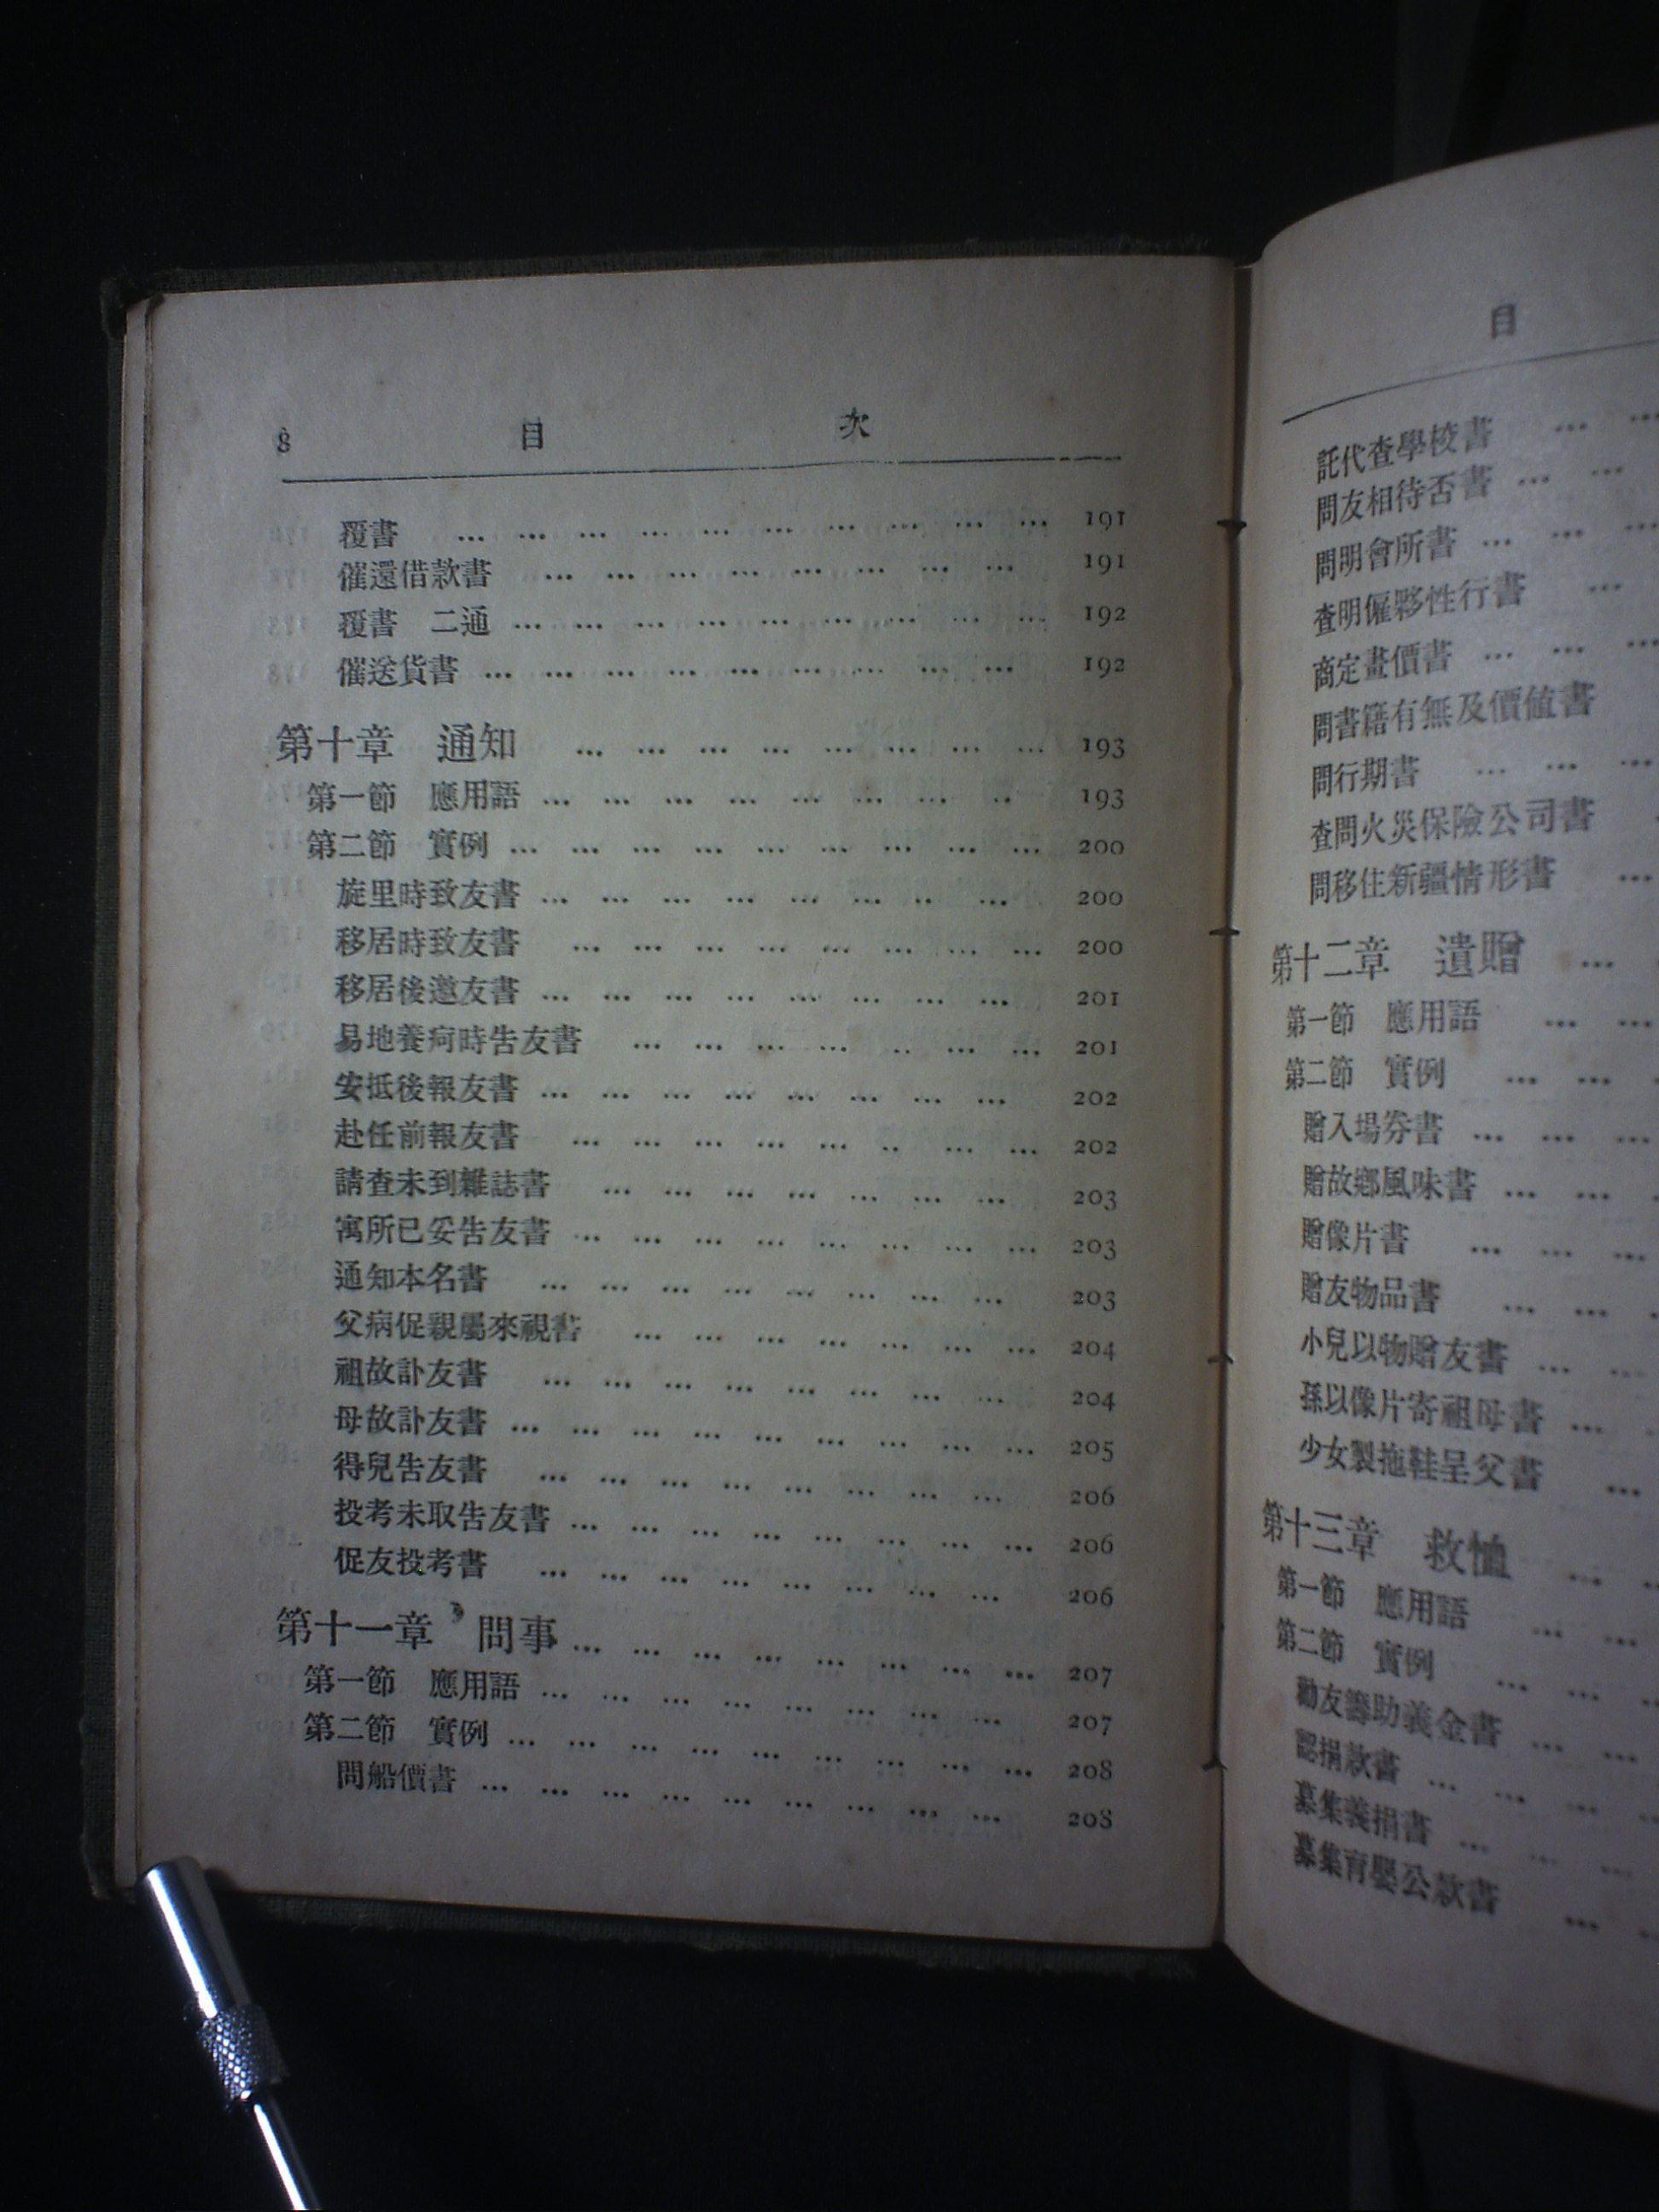 8 目 次
覆書 ... ... ... ... ... ... ... ... ... ... 191
催還借款書 ... ... ... ... ... ... ... ... 191
覆書 二通 ... ... ... ... ... ... ... ... ... 192
催送貨書 ... ... ... ... ... ... ... ... ... 192
第十章 通知 ... ... ... ... ... ... ... ... 193
第一節 應用語 ... ... ... ... ... ... ... .. 193
第二節 實例 ... ... ... ... ... ... ... ... ... 200
旋里時致友書 ... ... ... ... ... ... .. ... 200
移居時致友書 ... ... ... ... ... ... ... ... 200
移居後邀友書 ... ... ... ... ... ... ... ... 201
易地養疴時告友書 ... ... ... ... .. ... ... 201
安抵後報友書 ... ... ... ... ... ... ... ... 202
赴任前報友書 ... ... ... ... ... .. ... ... 202
請查未到雜誌書 ... ... ... ... ... ... ... 203
寓所已妥告友書 ... ... ... ... ... ... ... ... 203
通知本名書 ... ... ... ... ... ... ... ... 203
父病促親屬來視書 ... ... ... ... ... ... ... 204
祖故訃友書 ... ... ... ... ... ... ... ... 204
母故訃友書 ... ... ... ... ... ... ... ... ... 205
得兒告友書 ... ... ... ... ... ... ... ... 206
投考未取告友書 ... ... ... ... ... ... ... ... 206
促友投考書 ... ... ... ... ... ... ... ... 206
第十一章 問事 ... ... ... ... ... ... ... ... 207
第一節 應用語 ... ... ... ... ... ... ... ... 207
第二節 實例 ... ... ... ... ... ... ... ... ... 208
問船價書 ... ... ... ... ... ... ... ... ... 208
目
託代查學校書 ... ...
問友相待否書 ... ...
問明會所書 ... ... ...
查明僱夥性行書 ...
商定畫價書 ... ... ...
問書籍有無及價值書
問行期書 ... ... ...
查問火災保險公司書
問移住新疆情形書 ...
第十二章 遺贈 ...
第一節 應用語 ... ...
第二節 實例 ... ...
贈入場券書 ... ... ...
贈故鄉風味書 ... ...
贈像片書 ... ... ...
贈友物品書 ... ...
小兒以物贈友書 ... ...
孫以像片寄祖母書 ...
少女製拖鞋呈父書 ...
第十三章 救恤 ... ...
第一節 應用語 ... ...
第二節 實例 ... ...
勸友籌助義金書 ... ...
認捐款書 ... ... ...
募集義捐書 ... ... ...
募集育嬰公款書 ... ...